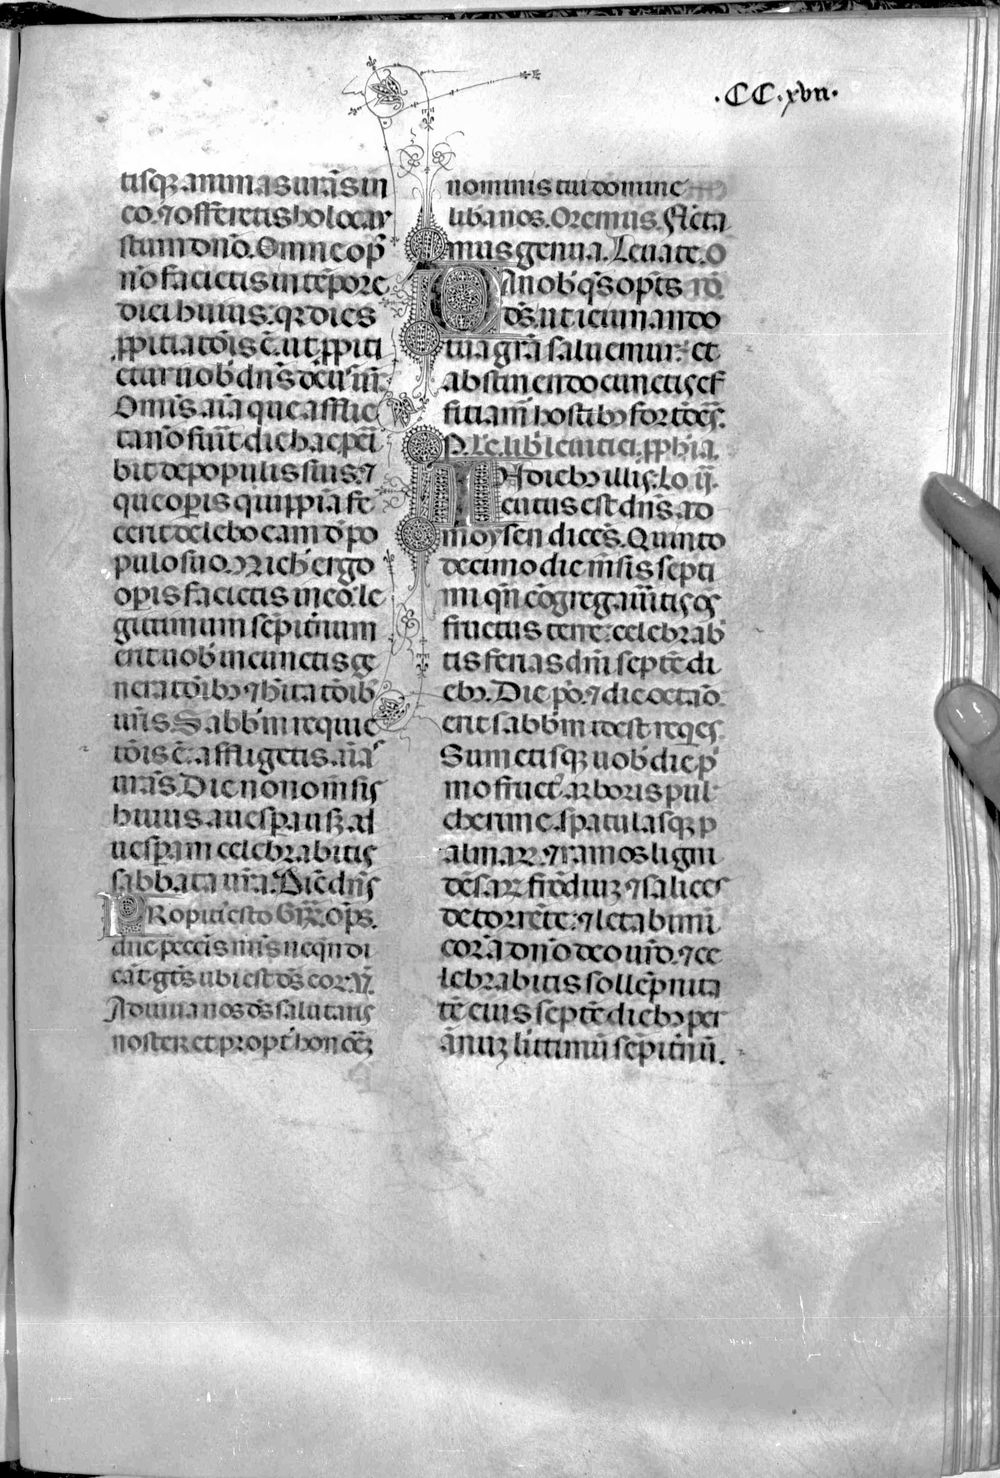 .CC.xvii.
tisqꝫ animas ur̄as in
eo. ⁊ offeretis holocau
stum dn̄o. Omne op̄
nō facietis in tēpore
diei huius. qꝛ dies
ꝓpitiatōis ē. ut ꝓpiti
etur uob̄ dn̄s de᷒ ur̄.
Omīs aīa que afflic
ta nō fūit die hac peri
bit de populis suis. ⁊
que operis quippiā fe
cerit delebo eam d̄ po
pulo suo. Nich̄ ergo
opis facietis in eo. le
gitimum sēpit̄num
erit uob̄ in cunctis ge
neratōibꝫ ⁊ hītatōib᷒
ur̄is. Sabb̄m requie
tōis ē. affligetis aīa᷒
ur̄as. Die nono m̄sis
huius a uesp̄a usqꝫ ad
uesp̄am celebrabitis
sabbata ur̄a. Dic̄ dn̄s
PRopiti᷒ esto Gꝛ̄. Om̄ps.
dn̄e pecc̄is nr̄is neqn̄ di
cāt gtēs ubi est ds̄ eoꝝ. ꝟ.
Adiuua nos ds̄ salutaris
noster et propt̄ honoēꝫ
nominis tui domine
liba nos. Oremus. Flecta
mus genua. Leuate. O
DA nobis qs̄ opīs
ds̄. ut ieiunando
tua gr̄a satiemur: et
abstinendo cunctis ef
ficiam̄ hostibꝫ fortōes̄.
P. Lc̄. lib̄ leuitici. ꝓph̄ia.
IN dieb᷒ illis. Lo ij.
cutus est dn̄s ad
moysen dicēs. Quinto
decimo die m̄sis septi
mi qn̄ cōgregauītis oēs
fructus terre: celebrab
tis ferias dn̄i septē di
ebꝫ. Die pō. ⁊ die octāo
erit sabb̄m idest reqes.
Sumetisqꝫ uob̄ die p̄
mo fruct᷒ arboris pul
cherrime. spatulasqꝫ p
almaꝝ. ⁊ ramos ligni
dēsaꝝ frōdiuꝫ ⁊ salices
de torrēte: ⁊ letabimī
corā dn̄o deo ur̄o. ⁊ ce
lebrabitis sollēpnita
tē eius septē diebꝫ per
ānuꝫ. littimū sēpit̄nū.